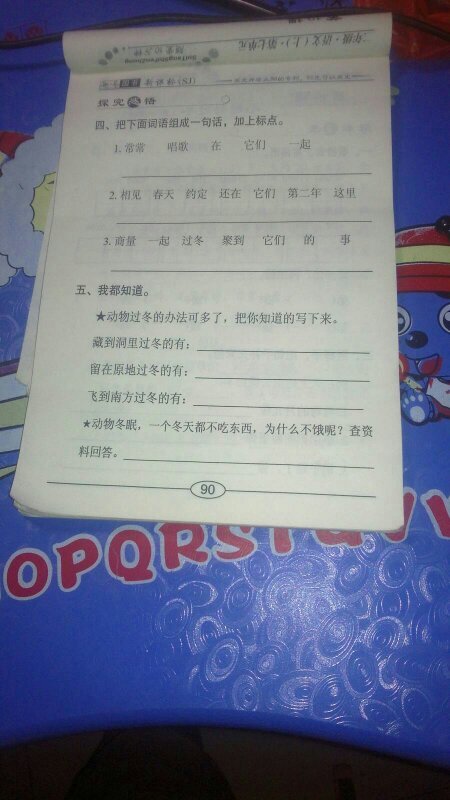 SuiTangShiFenZhong
随堂10分钟
二年级·语文（上）·第七单元
新课标(SJ)
探究感悟
四、把下面词语组成一句话，加上标点。
1. 常常 唱歌 在 它们 一起
2. 相见 春天 约定 还在 它们 第二年 这里
3. 商量 一起 过冬 聚到 它们 的 事
五、我都知道。
★动物过冬的办法可多了，把你知道的写下来。
藏到洞里过冬的有：
留在原地过冬的有：
飞到南方过冬的有：
★动物冬眠，一个冬天都不吃东西，为什么不饿呢？查资
料回答。
90
OPQRSTUV